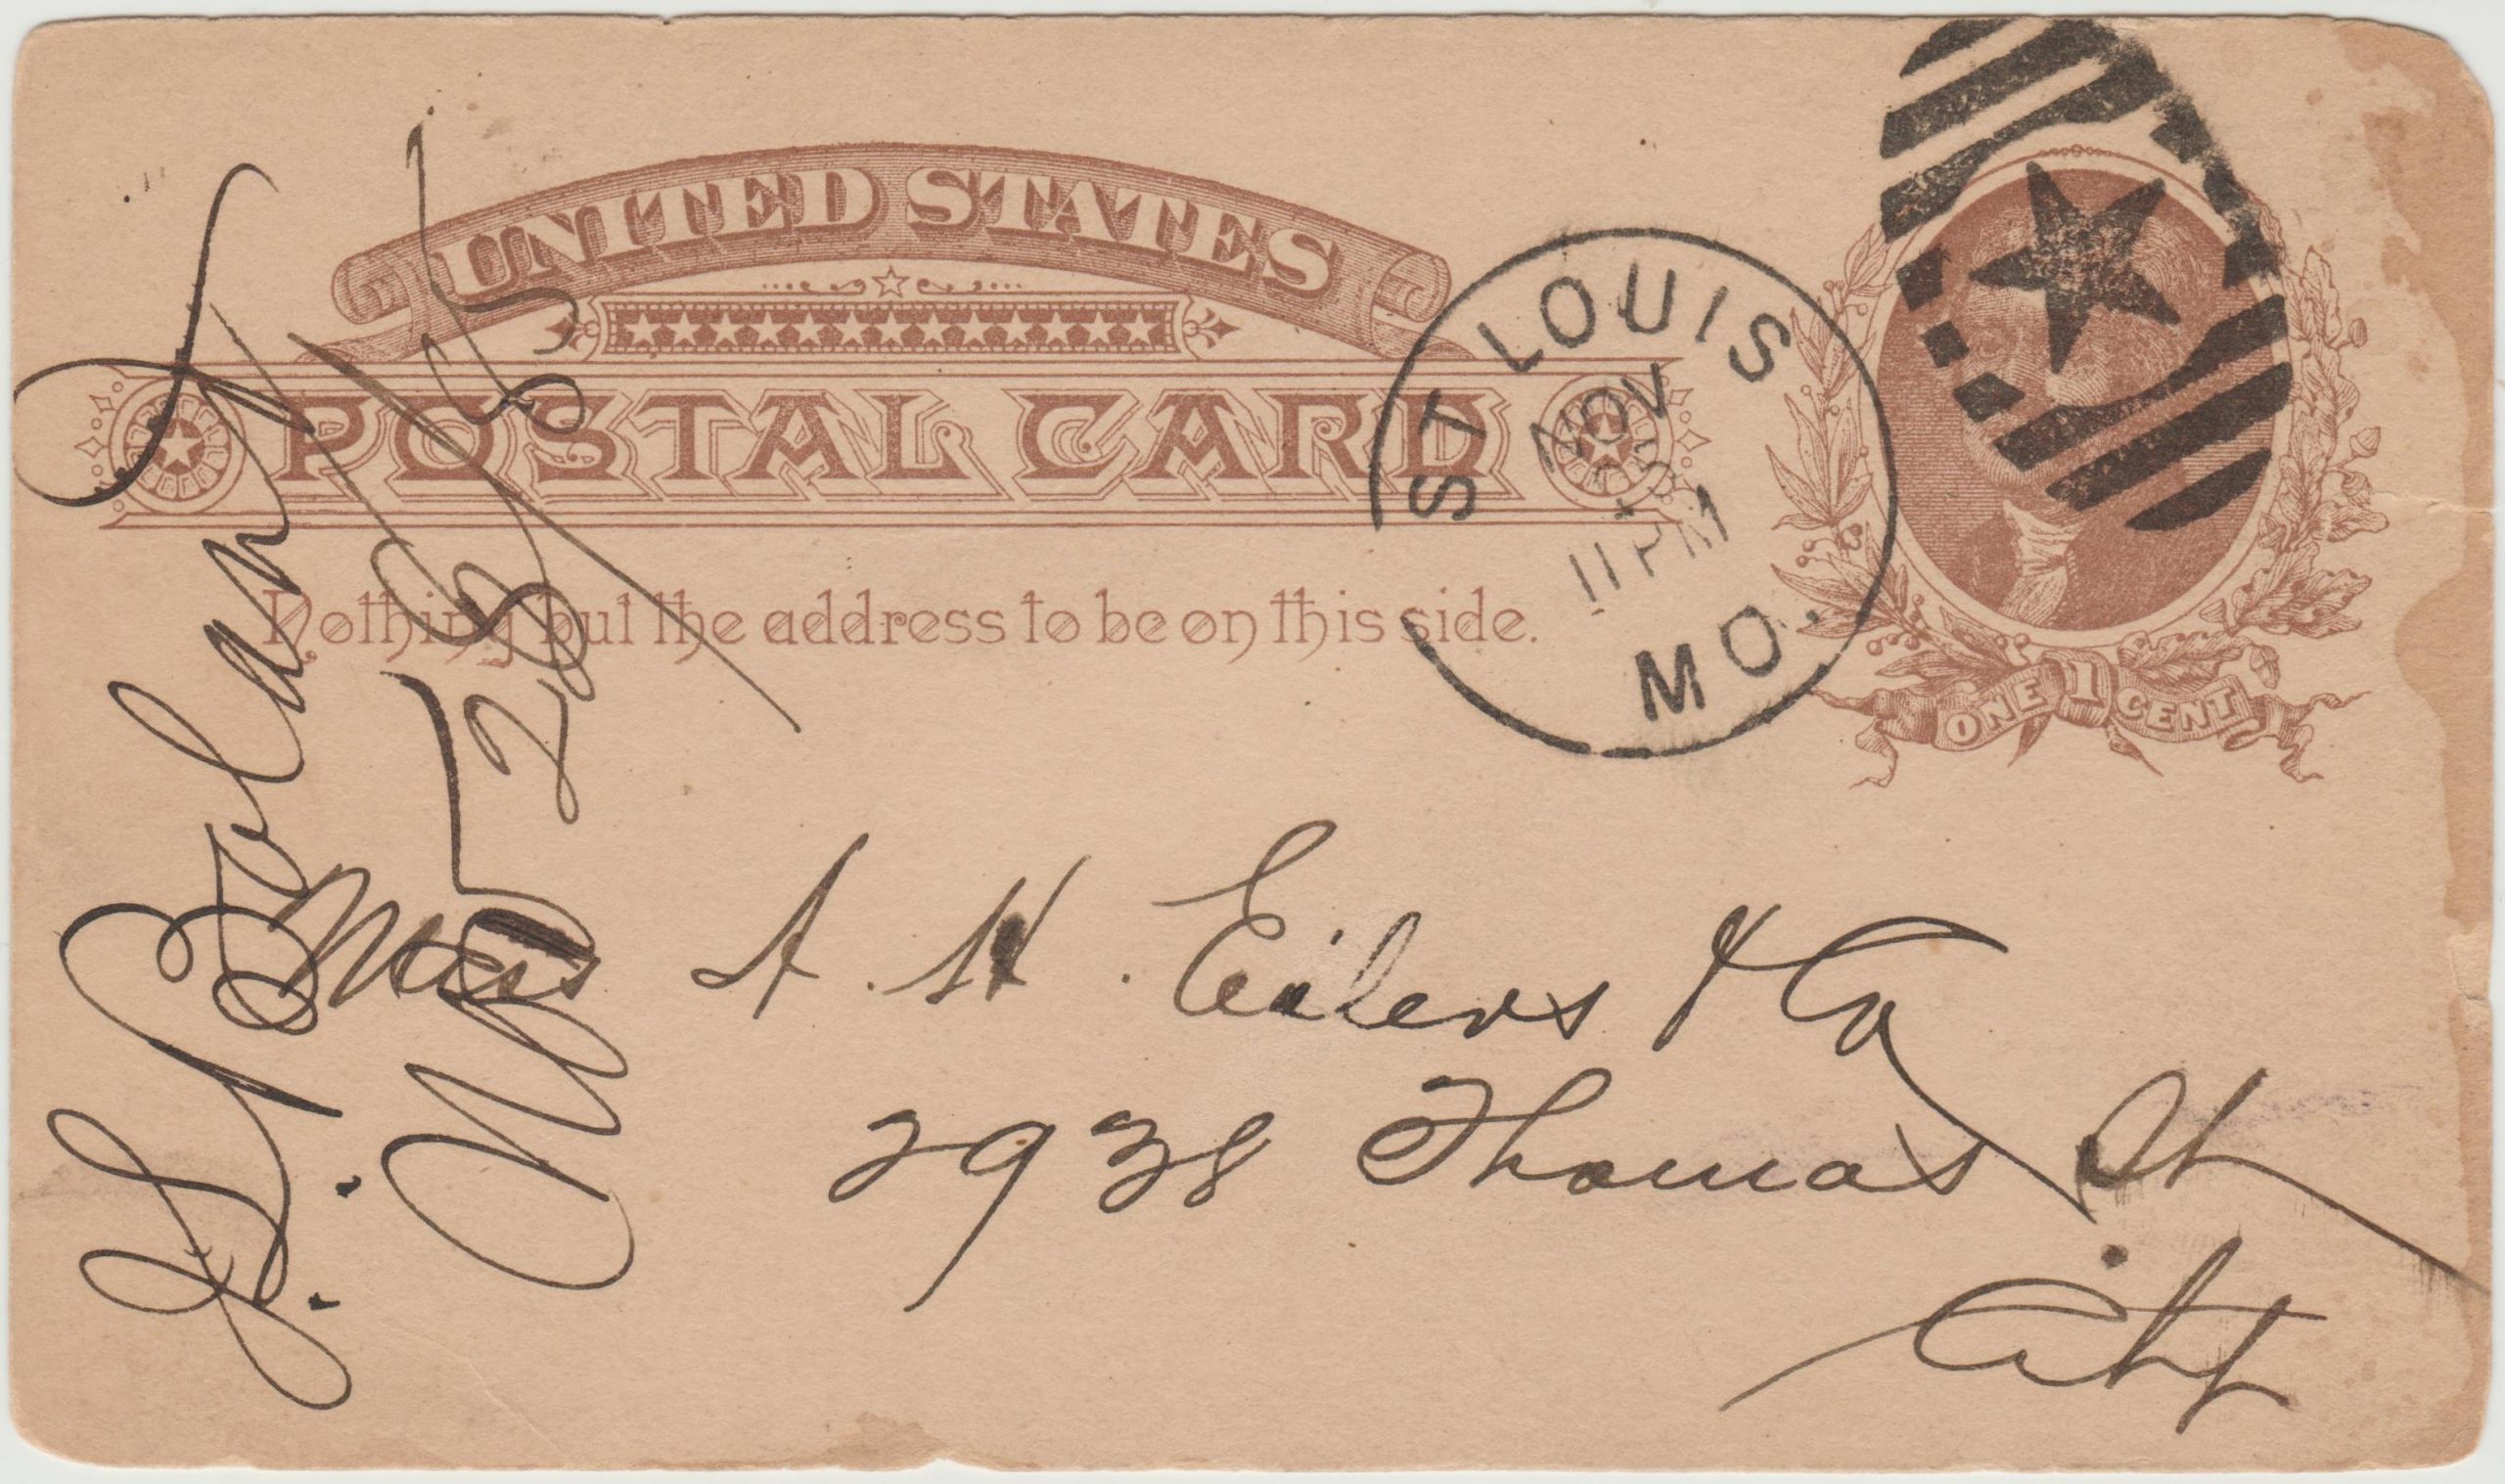 UNITED STATES
POSTAL CARD
Nothing but the address to be on this side.
ST LOUIS
NOV
11 PM
MO.
ONE 1 CENT
Mess A. H. Eilers & Co
2938 Thomas St.
City
J. S. Boland
28/85